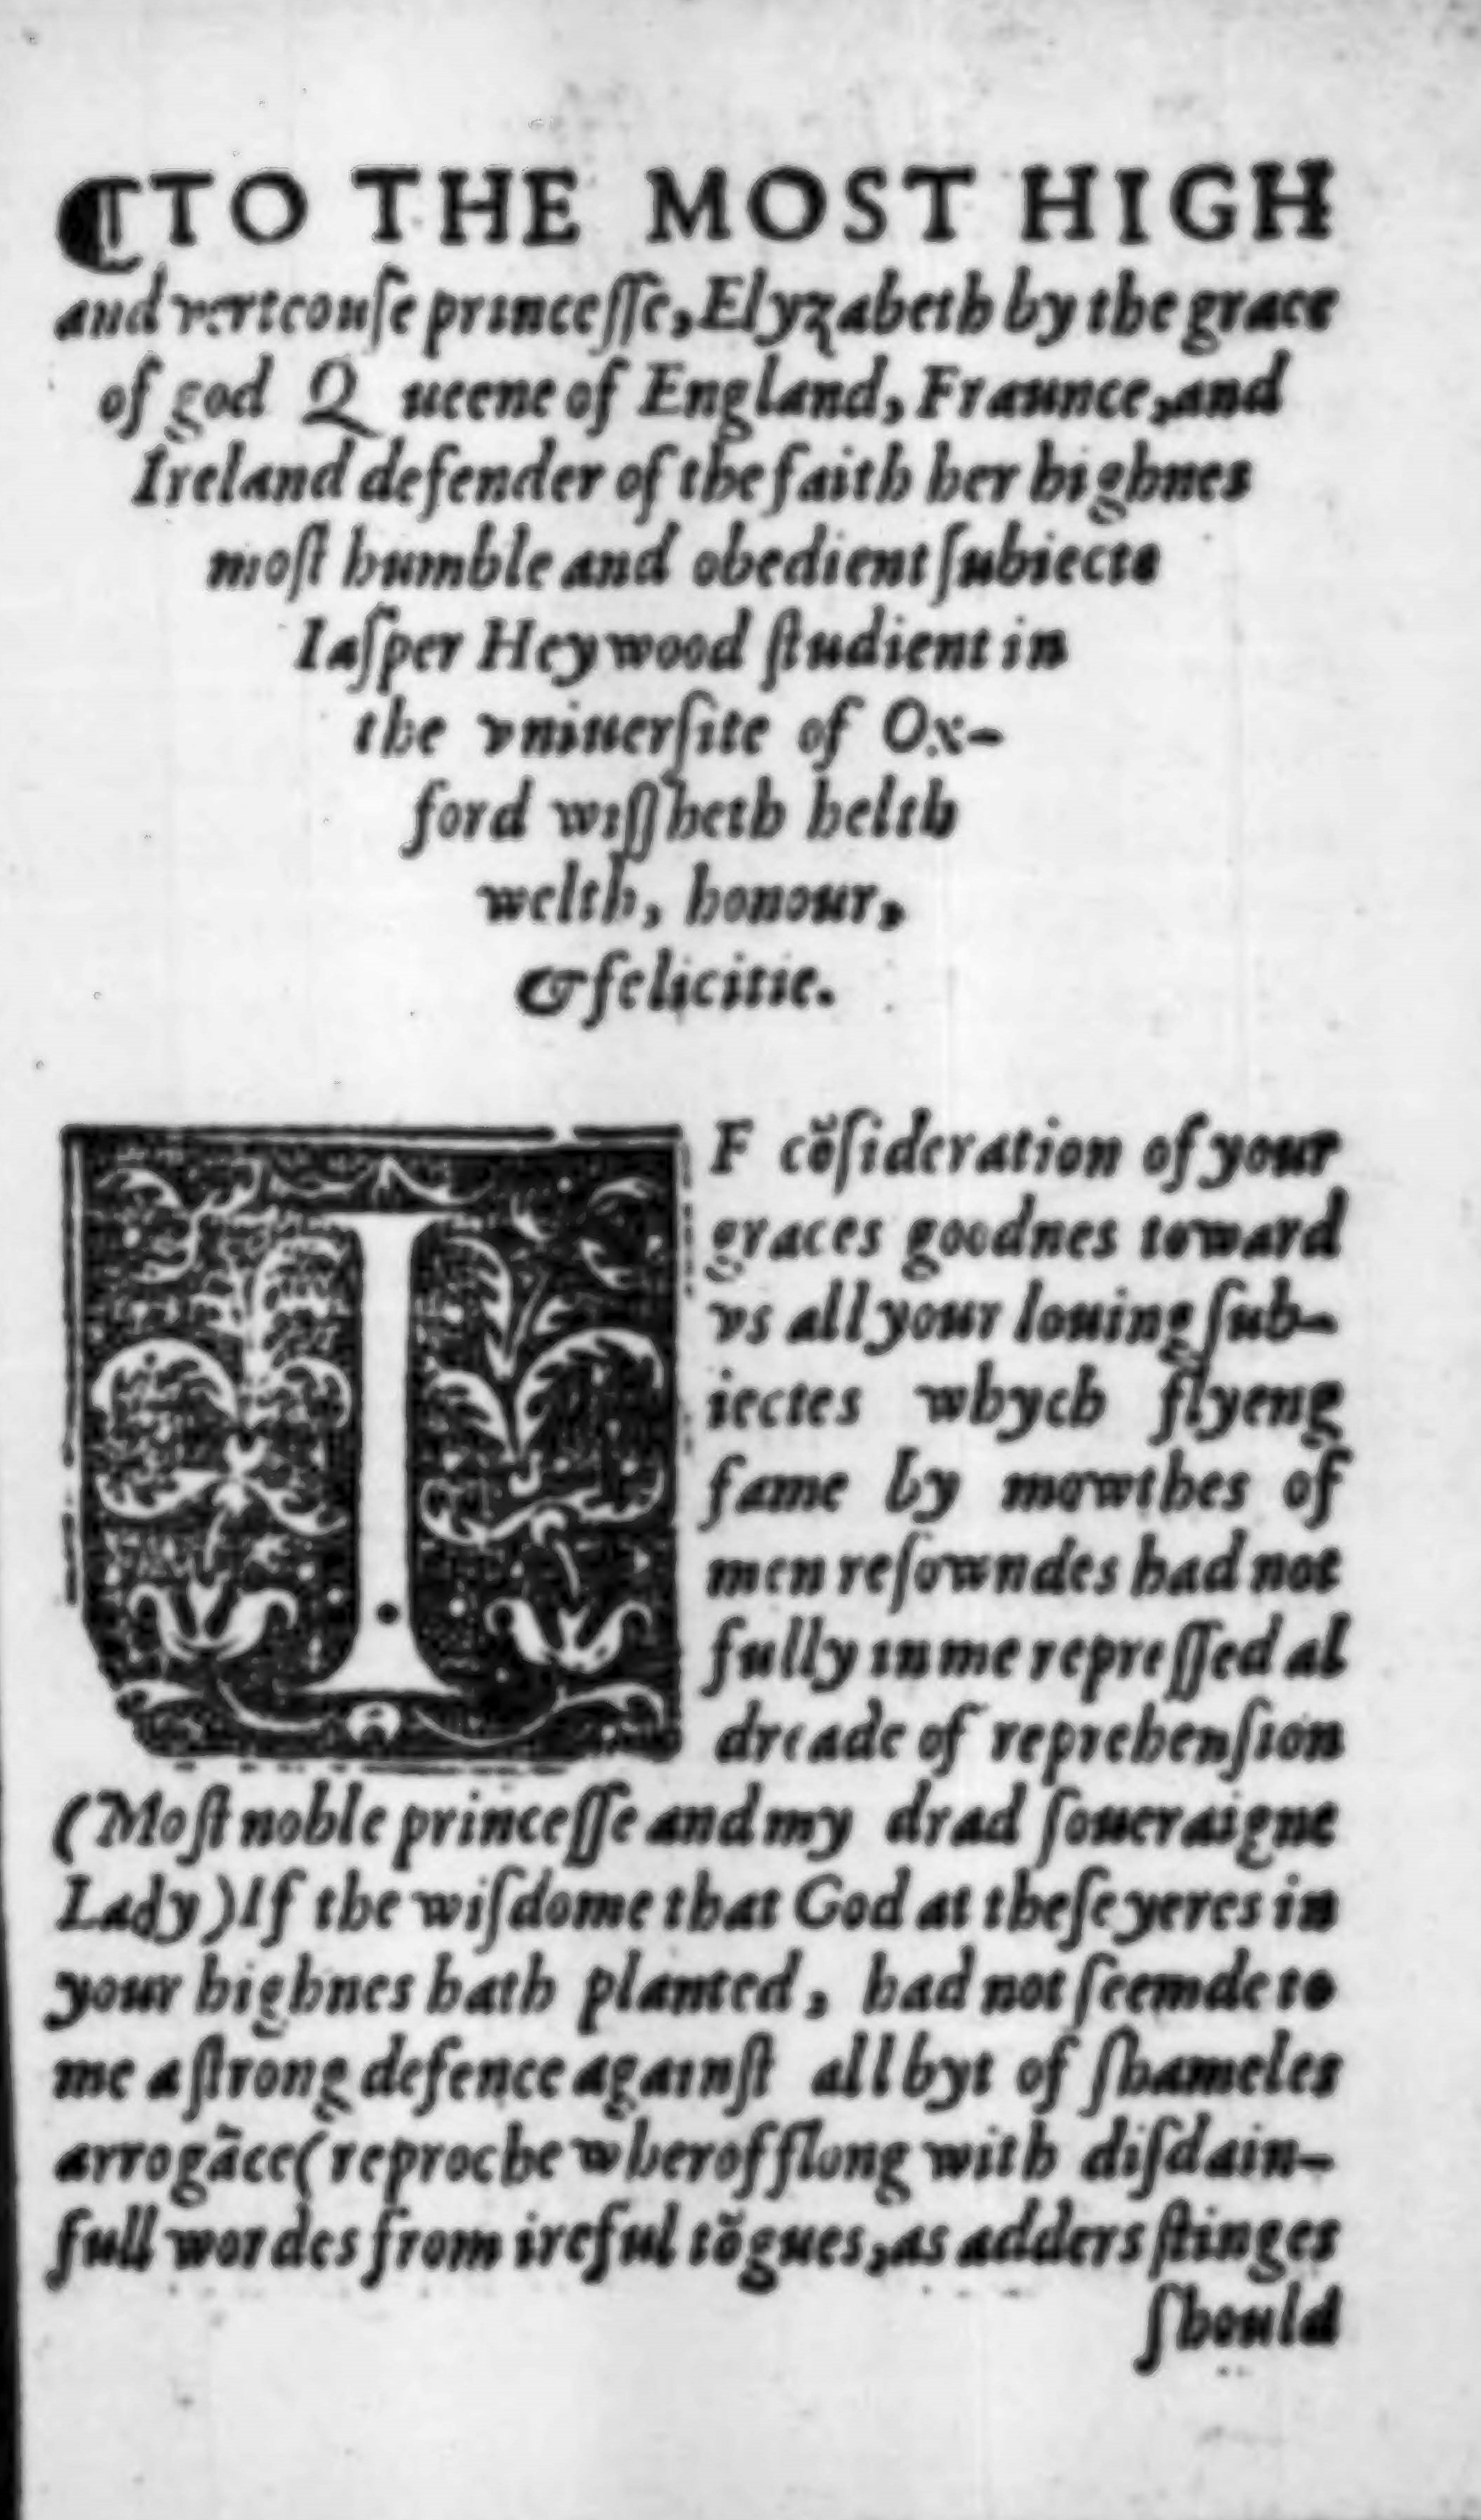 ¶TO THE MOST HIGH
and verteouſe princeſſe, Elyzabeth by the grace
of god Queene of England, Fraunce, and
Ireland defender of the faith her highnes
moſt humble and obedient ſubiecte
Iaſper Heywood ſtudient in
the vniuerſite of Ox-
ford wiſſheth helth
welth, honour,
& felicitie.
IF cõſideration of your
graces goodnes toward
vs all your louing ſub-
iectes whych flyeng
fame by mowthes of
men reſowndes had not
fully in me repreſſed al
dreade of reprehenſion
(Moſt noble princeſſe and my drad ſoueraigne
Lady) If the wiſdome that God at theſe yeres in
your highnes hath planted, had not ſeemde to
me a ſtrong defence againſt all byt of ſhameles
arrogãce (reproche wherof flong with diſdain-
full wordes from ireful tõgues, as adders ſtinges
ſhould